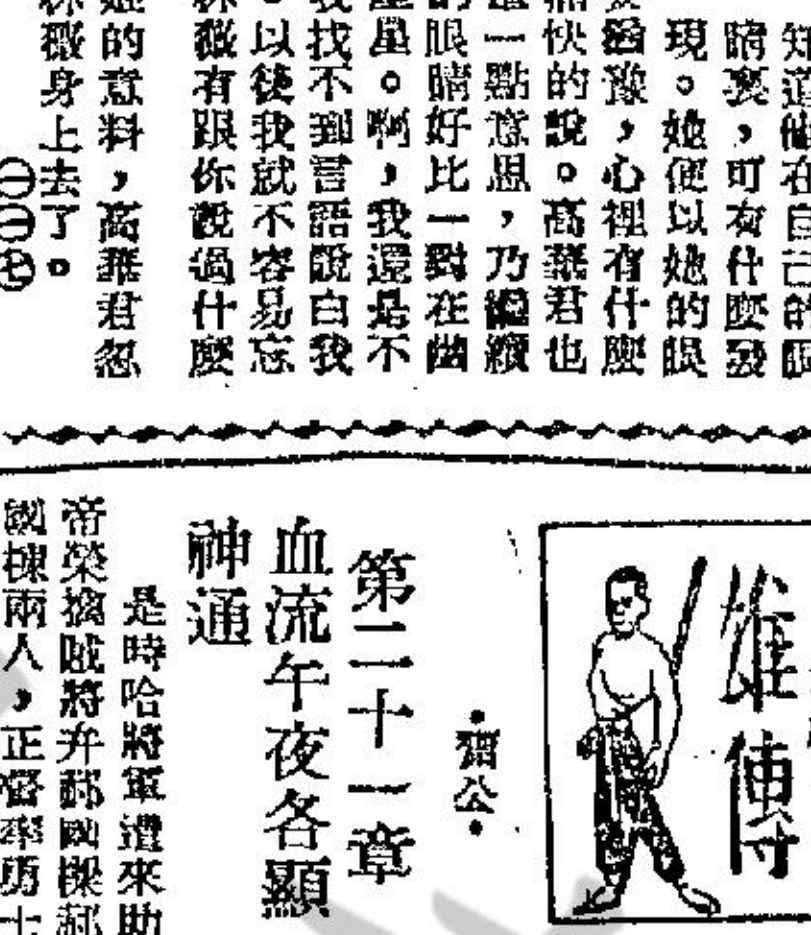 知道他在自己的眼
睛裏，可有什麼發
現。她便以她的眼
豫，心裡有什麼
快的說。高棐君也
一點意思，乃繼續
眼睛好比一對在幽
星。啊，我還是不
我找不到言語說白我
。以後我就不容易忘
薇有跟你說過什麼
的意料，高棐君忽
薇身上去了。
㊀㊀㊆
雄傳
·獨公·
第二十一章
血流午夜各顯
神通
是時哈將軍遣來助
帝榮擒賊將弁郝國樑郝
國棟兩人，正督率勇士